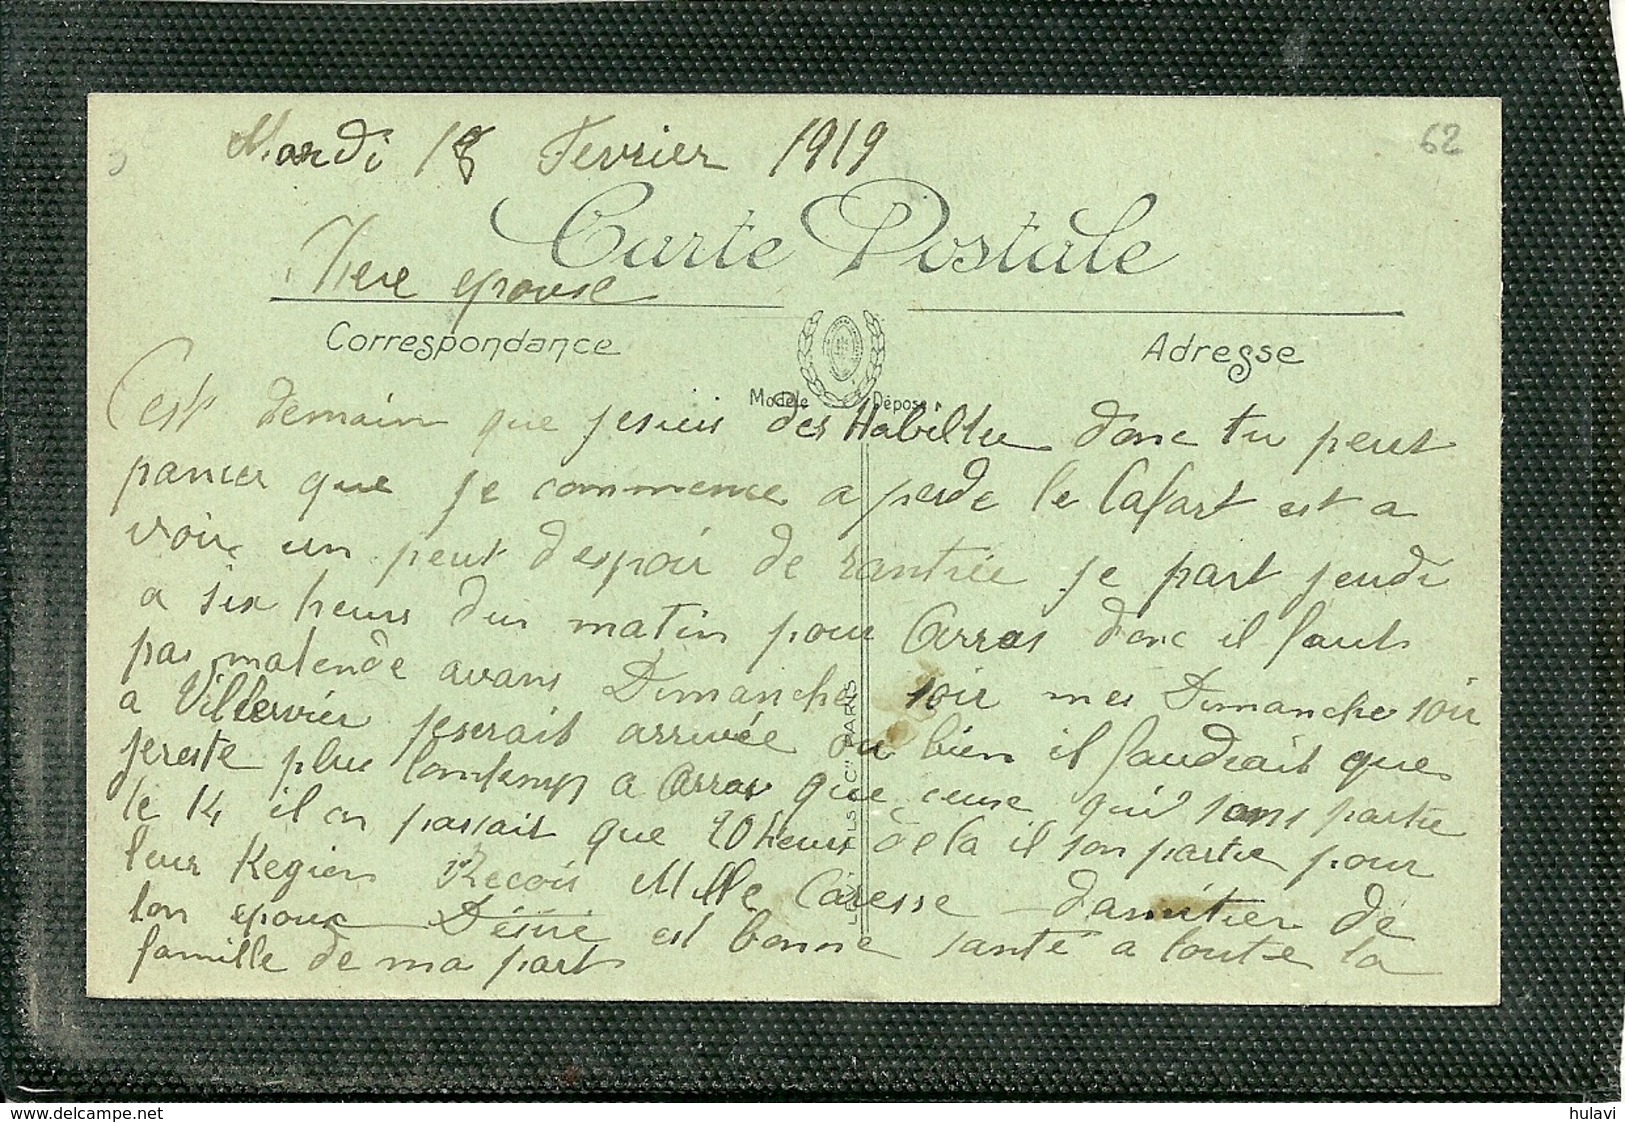 Mardi 18 Fevrier 1919
62
Carte Postale
Chere epouse
Correspondance
Adresse
Modèle Déposé
C'est demain que jesuis des Habillee donc tu peut
pancer que je commence a perde le Cafart est a
voir un peut d'espoir de rantrée je part jeudi
a six heurs dus matin pour Arras donc il faut
pas matende avans Dimanche soir mes Dimanche soir
a Villervier jeserait arrivée ou bien il faudrait que
jereste plus lontemp a Arras que ceuse qui sons partie
le 14 il on passait que 20 heurs de la il son partie pour
leur Region Recois Mille Caresse d'amitier de
ton epoux Désiré est bonne santé a toute la
famille de ma part
"C" PARIS
www.delcampe.net
hulavi